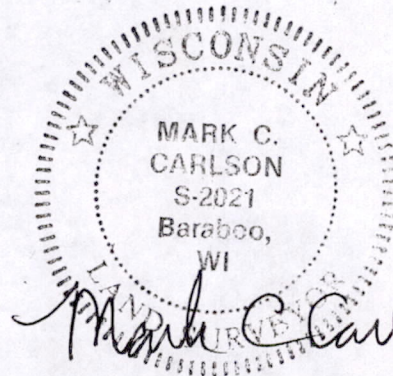 WISCONSIN
MARK C.
CARLSON
S-2021
Baraboo,
WI
LAND SURVEYOR
Mark C Carl